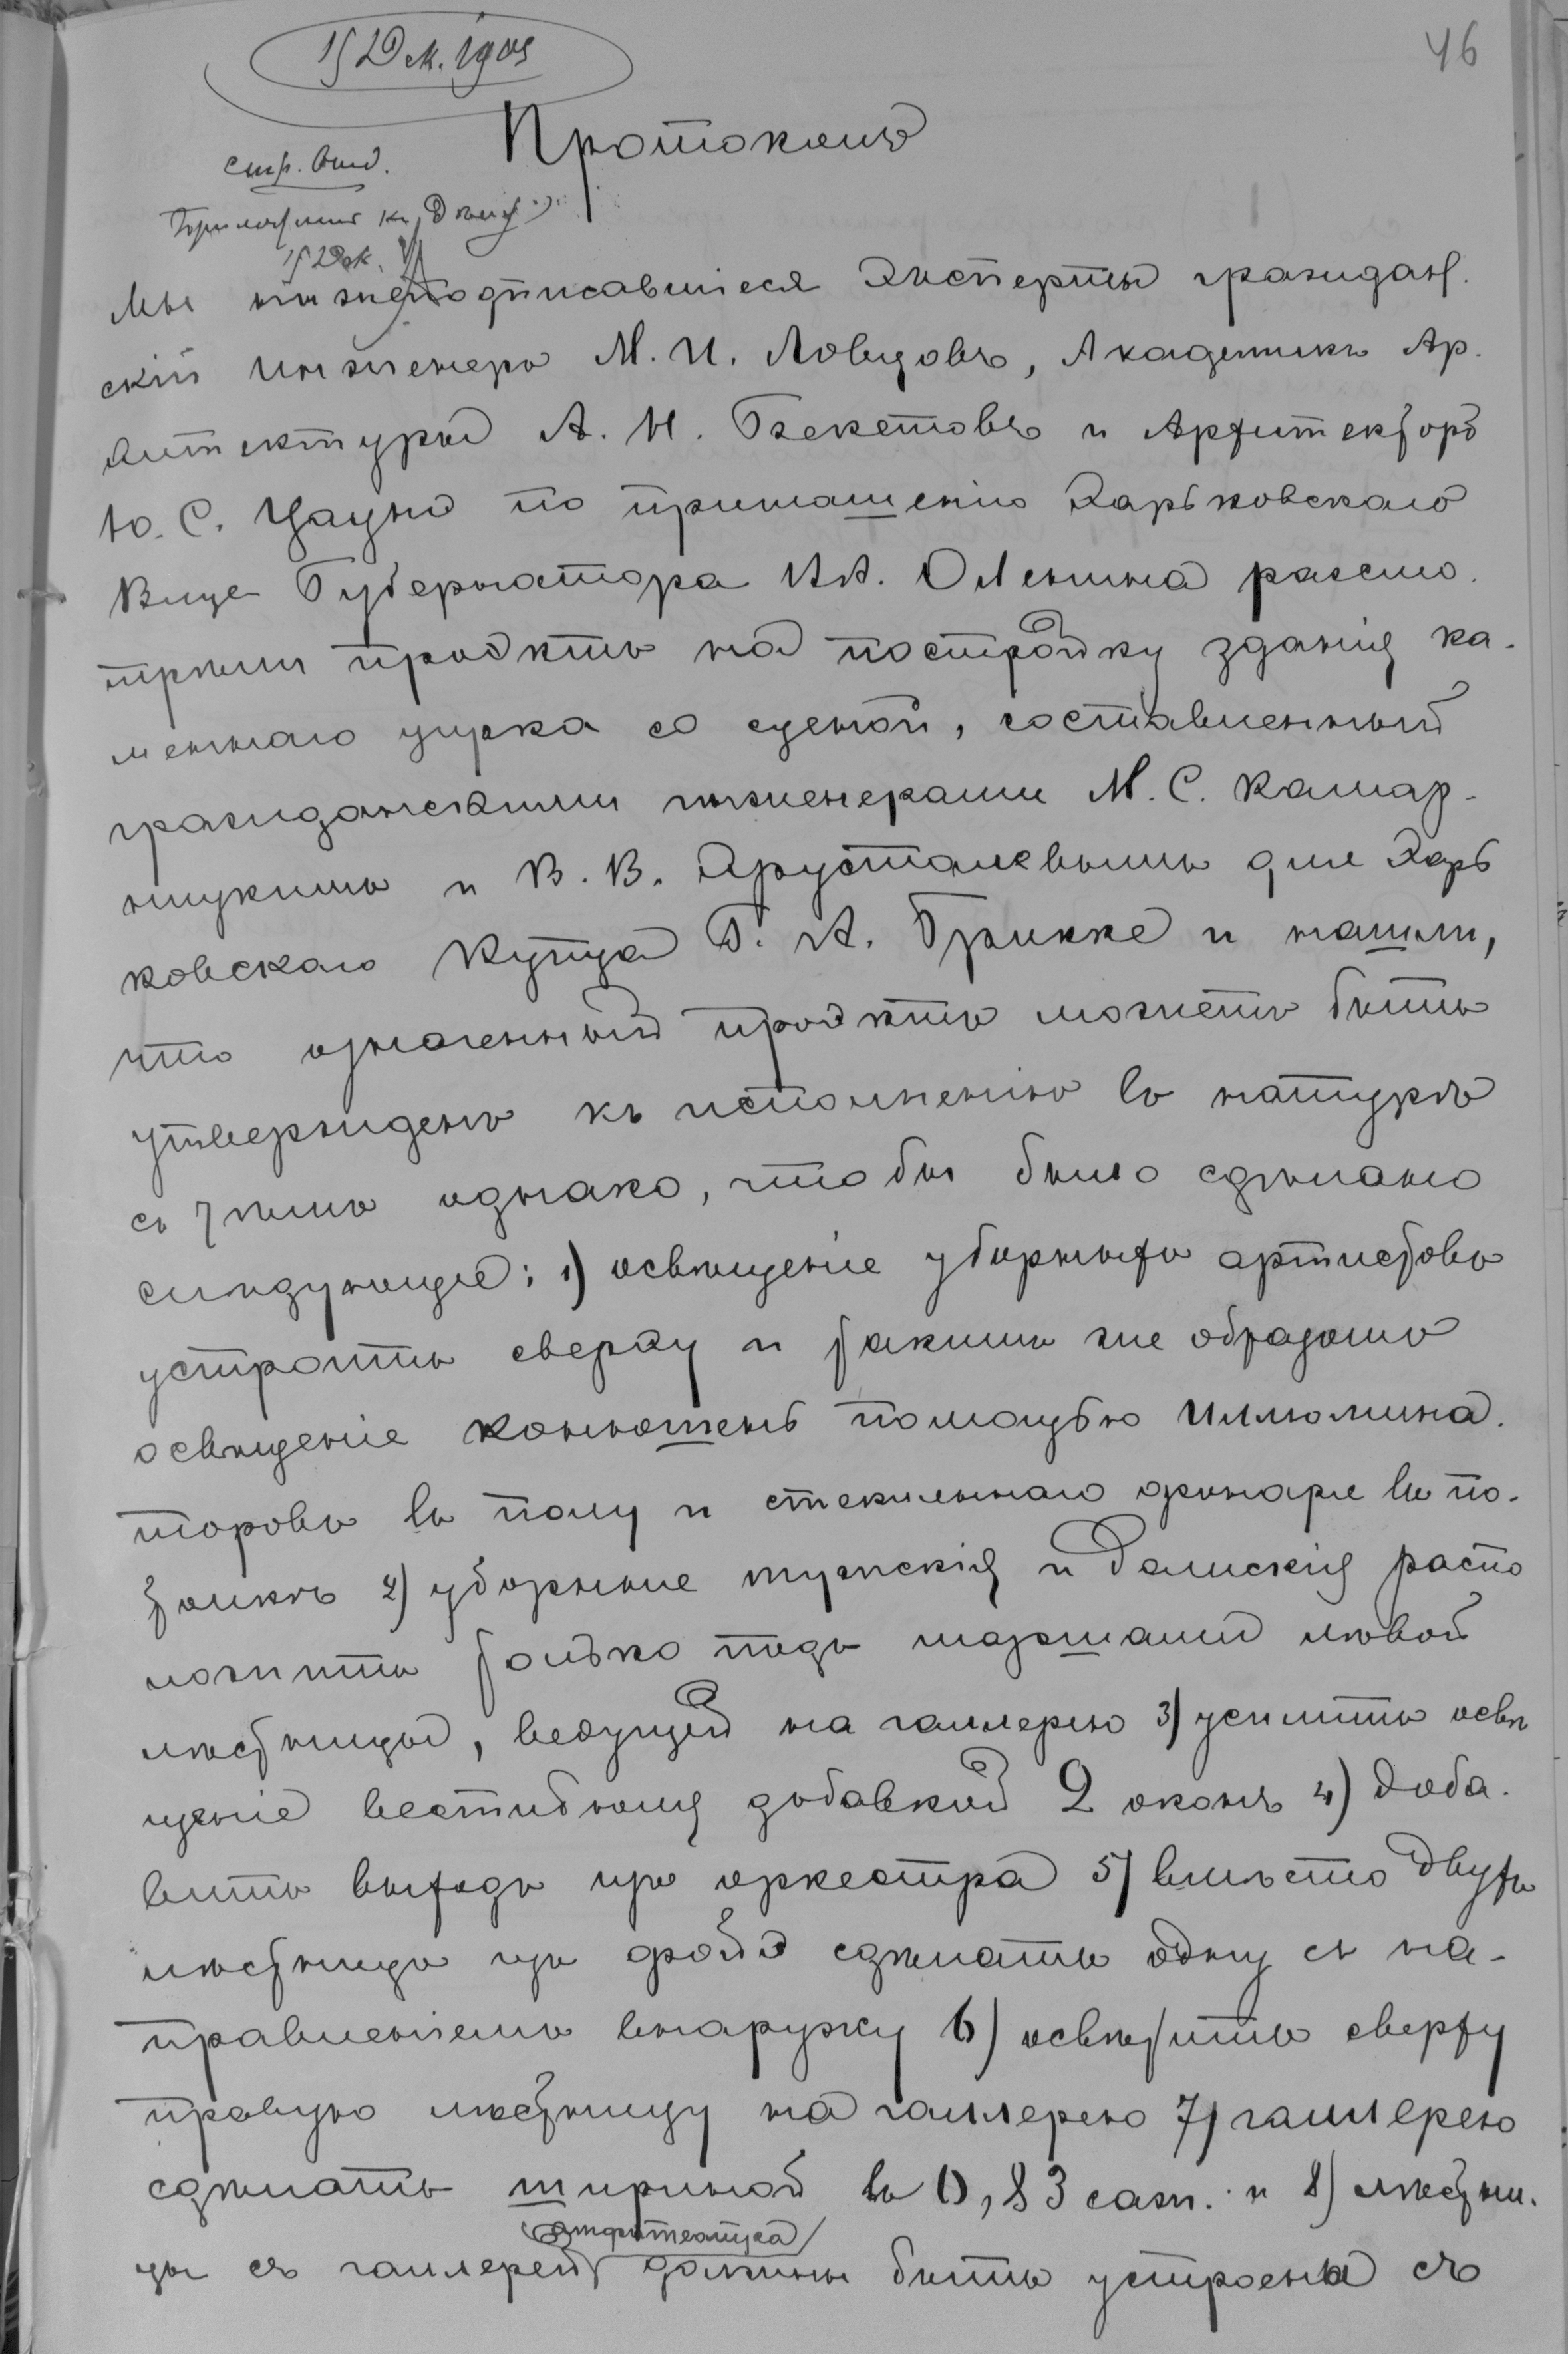 15 Дек. 1905
46
Протоколъ
стр. отд.
Приложенiе къ
15 Дек.
Мы нижеподписавшiеся Эксперты граждан.
скiй Инженеръ М. И. Ловцовъ, Академикъ Ар.
хитектуры А. Н. Бекетовъ и Архитекторъ
Ю. С. Цауне по приглашенiю Харьковскаго
Вице Губернатора Оленина разсмо.
трѣли проэктъ на постройку зданiя ка-
меннаго цирка со сценой, составленный
гражданскими инженерами М. С. Комар-
ницкимъ и В. В. Хрусталевымъ для Харь
ковскаго Купца Г. А. Грикке и нашли,
что означенный проэктъ можетъ быть
утвержденъ къ исполненiю въ натурѣ
съ тѣмъ однако, чтобы было сдѣлано
слѣдующее: 1) освѣщенiе уборныхъ артистовъ
устроить сверху и такимъ же образомъ
освѣщенiе конюшень помощью Иллюмина.
торовъ въ полу и стекляннаго фонаря въ по-
толкѣ 2) уборные мужскiя и дамскiя распо
ложить только подъ маршами лѣвой
лѣстницы, ведущей на галлерею 3) усилить освѣ
щенiе вестибюля добавкой 2 оконъ 4) доба.
вить выходъ изъ оркестра 5) вмѣсто двухъ
лѣстницъ изъ фойэ сдѣлать одну съ на-
правленiемъ внаружу 6) освѣтить сверху
правую лѣстницу на галлерею 7) галлерею
сдѣлать шириной въ 0,83 саж. и 8) лѣстни.
амфитеатра
цы съ галлереи должны быть устроены съ